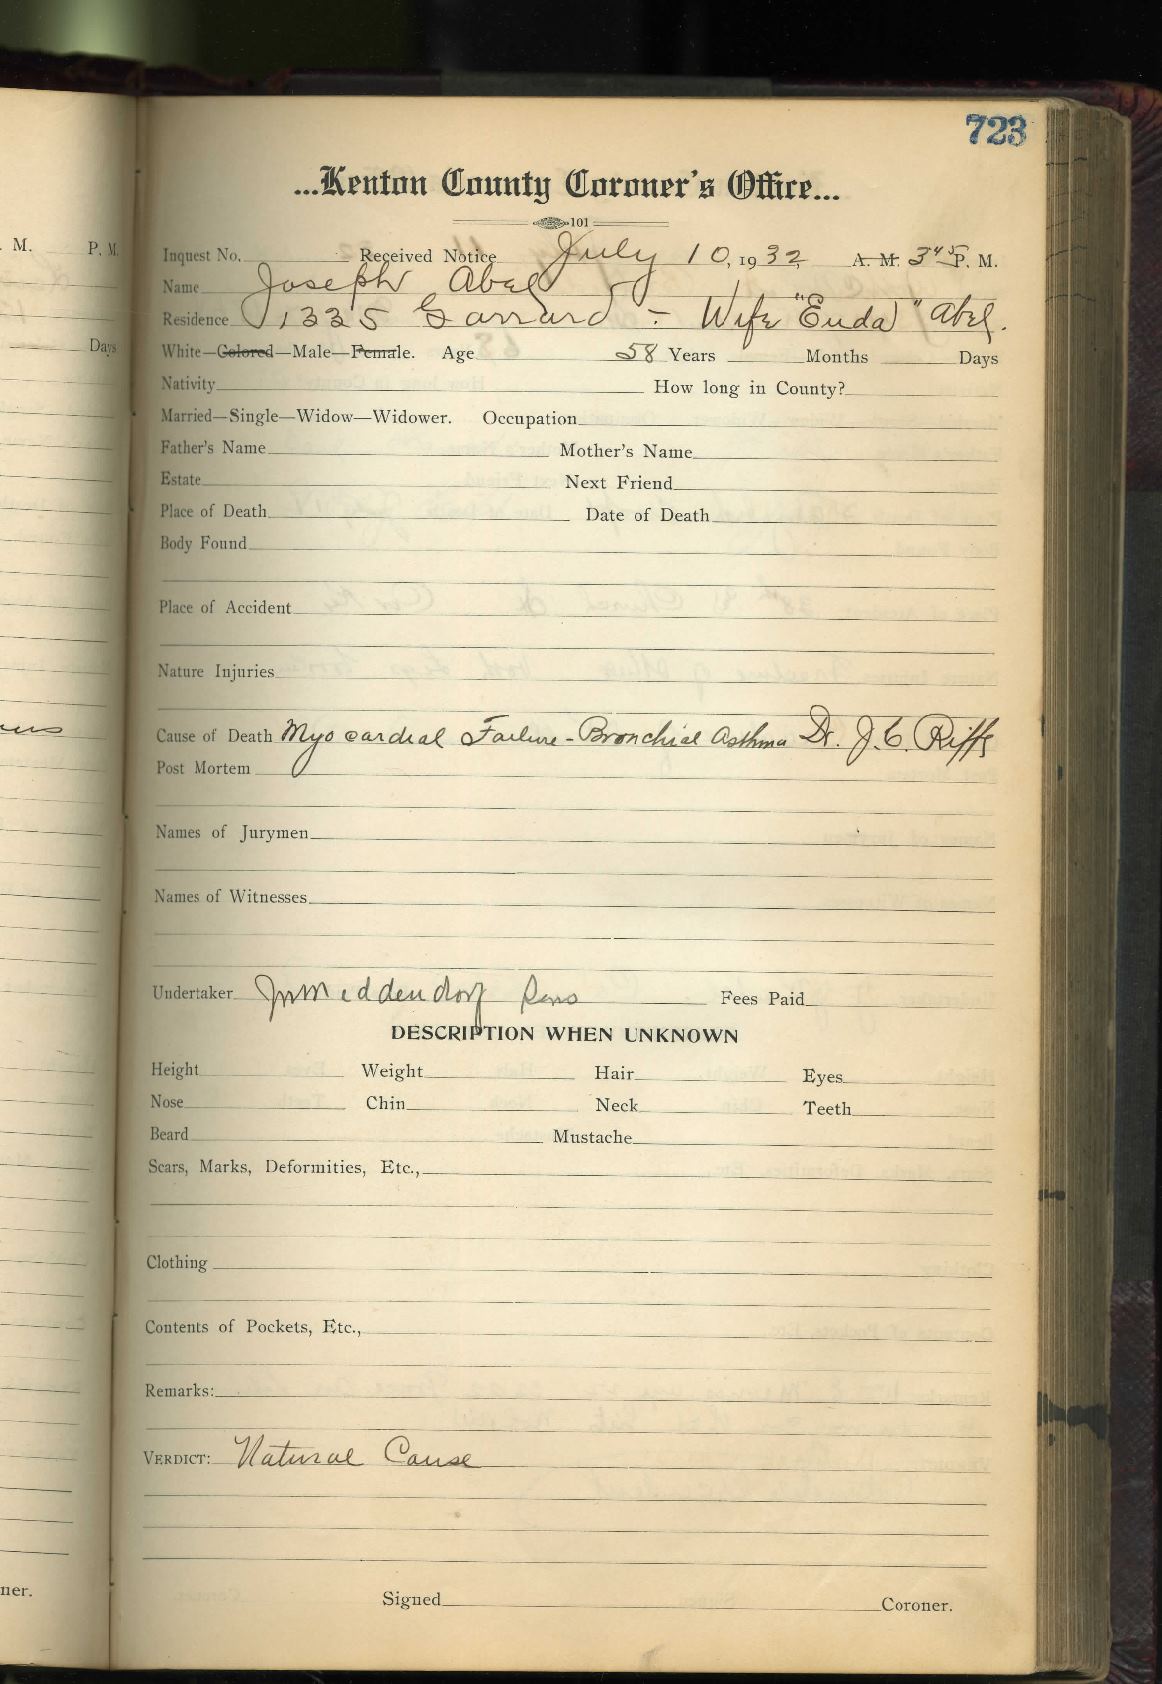 723
...Kenton County Coroner's Office...
101
. M. P. M.
Inquest No. Received Notice July 10, 1932, A. M. 3⁴⁵ P. M.
Name Joseph Abel
Residence 1335 Garrard - Wife "Euda" Abel.
Days
White—Colored—Male—Female. Age 58 Years Months Days
Nativity How long in County?
Married—Single—Widow—Widower. Occupation
Father's Name Mother's Name
Estate Next Friend
Place of Death Date of Death
Body Found
Place of Accident
Nature Injuries
Cause of Death Myocardial Failure - Bronchial Asthma Dr. J. C. Riffs
Post Mortem
Names of Jurymen
Names of Witnesses
Undertaker Jno Middendorf Sons Fees Paid
DESCRIPTION WHEN UNKNOWN
Height Weight Hair Eyes
Nose Chin Neck Teeth
Beard Mustache
Scars, Marks, Deformities, Etc.,
Clothing
Contents of Pockets, Etc.,
Remarks:
VERDICT: Natural Cause
ner.
Signed Coroner.